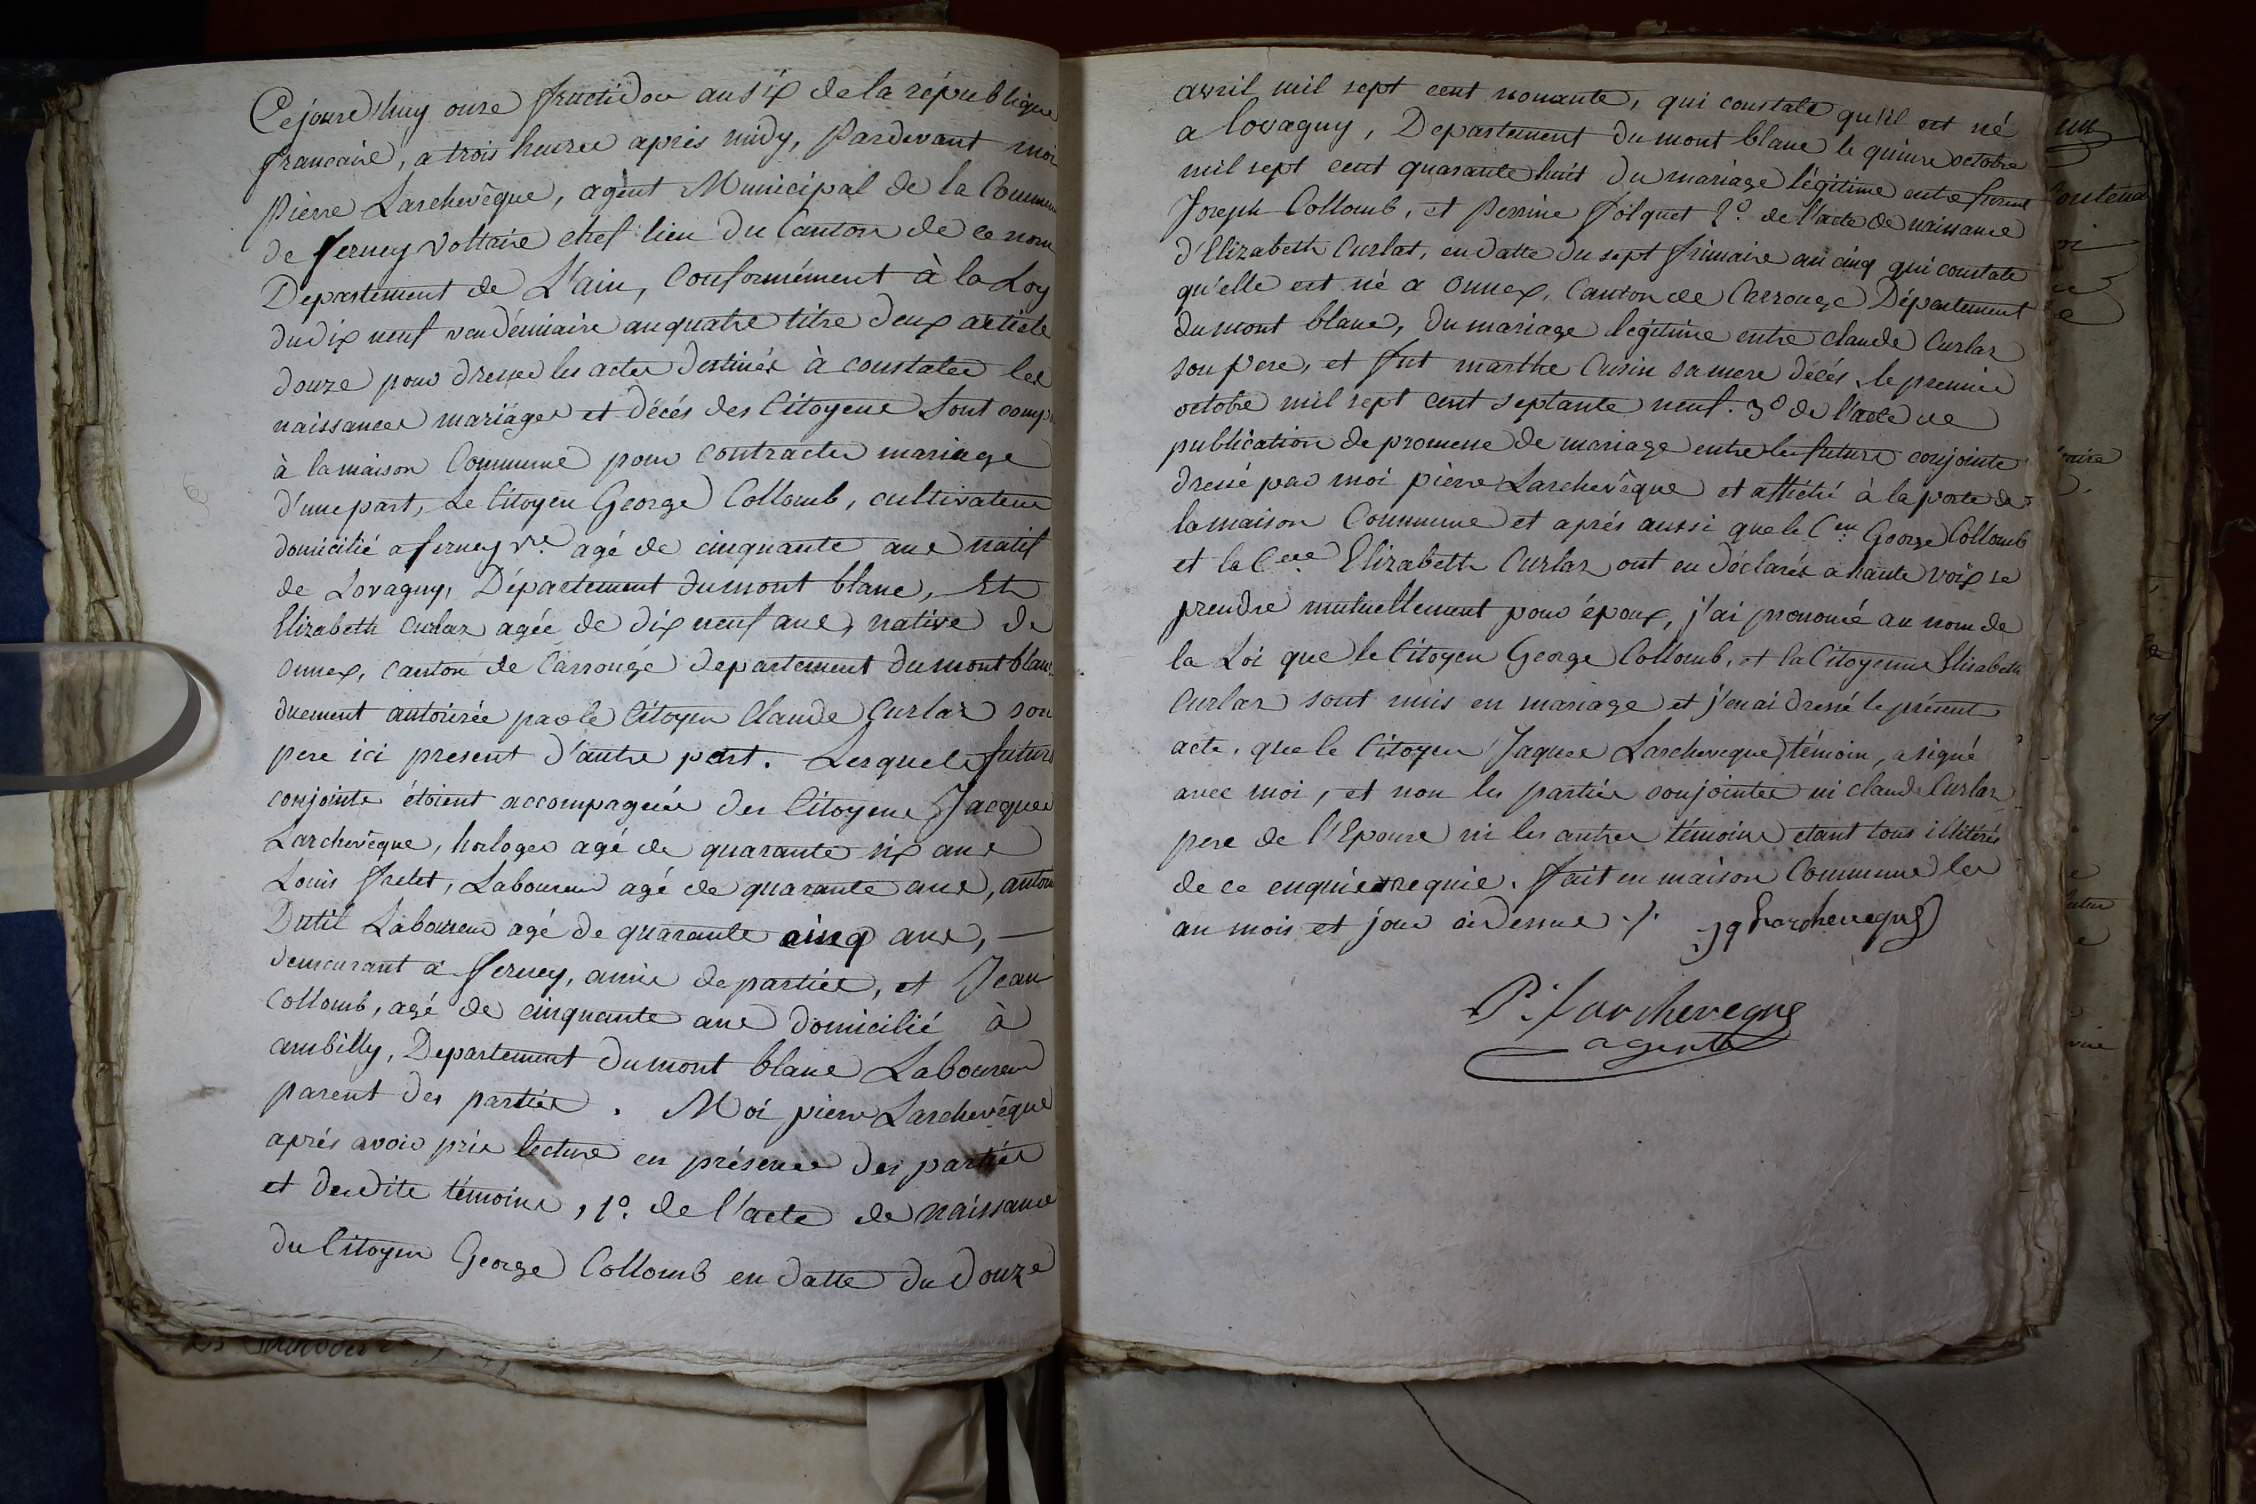 Cejourd'huy onze fructidor an six de la république
francaise, a trois heures après midy, Pardevant moi
Pierre Larchevêque, agent Municipal de la Commune
de ferney voltaire chef lieu du Canton de ce nom
Departement de L'ain, Conformément à la Loy
du dix neuf vendémiaire an quatre titre deux article
douze pour dresser les actes destinés à constater les
naissances mariages et décés des Citoyens sont comp
à la maison Commune pour contracter mariage
d'une part, Le Citoyen George Collomb, cultivateur
domicilié a ferney Vre agé de cinquante ans natif
de Lovagny, Département du mont blanc, Et
Elizabeth Curlaz agée de dix neuf ans, native de
onnex, canton de Carrouge departement du mont blanc
duement autorisée par le Citoyen Claude Curlaz son
pere ici present d'autre part. Lesquels futurs
conjoints étoient accompagnés des Citoyens Jacques
Larchevêque, horloger agé de quarante six ans
Louis fretet, Laboureur agé de quarante ans, antoine
Dutil Laboureur agé de quarante cinq ans,
demeurant à ferney, amis de parties, et Jean
Collomb, agé de cinquante ans domicilié à
ambilly, Departement du mont blanc Laboureur
parent des parties. Moi pierre Larchevêque
après avoir pris lecture en présence des parties
et desdits témoins, 1º. de l'acte de naissance
du Citoyen George Collomb en datte du douze
avril mil sept cent nonante, qui constate qu'il est né
a lovagny, Departement du mont blanc le quinze octobre
mil sept cent quarante huit du mariage légitime entre
Joseph Collomb, et Perrine folquet 2º. de l'acte de naissance
d'Elizabeth Curlat, en datte du sept frimaire an cinq qui constate
qu'elle est né a onnex, Canton de Carrouge Département
du mont blanc, du mariage legitime entre claude Curlaz
son pere, et fut marthe Cusin sa mere décés le premier
octobre mil sept cent septante neuf. 3º de l'acte de
publication de promesse de mariage entre les futurs conjoints
dressé par moi pierre Larchevêque et affiché à la porte de
la maison Commune et après aussi que le Cen George Collomb
et la Cene Elizabeth Curlaz ont eu déclarés a haute voix se
prendre mutuellement pour époux, j'ai prononcé au nom de
la Loi que le Citoyen George Collomb, et la Citoyenne Elisabeth
Curlaz sont unis en mariage et j'en ai dressé le présent
acte, que le Citoyen Jaques Larcheveque témoin, a signé
avec moi, et non les parties conjointes ni claude Curlaz
pere de l'Epouse ni les autres témoins etant tous illitérés
de ce enquis requis. fait en maison Commune les
an mois et jour ci dessus ./. Jq Larcheveque
P. Larcheveque
agent